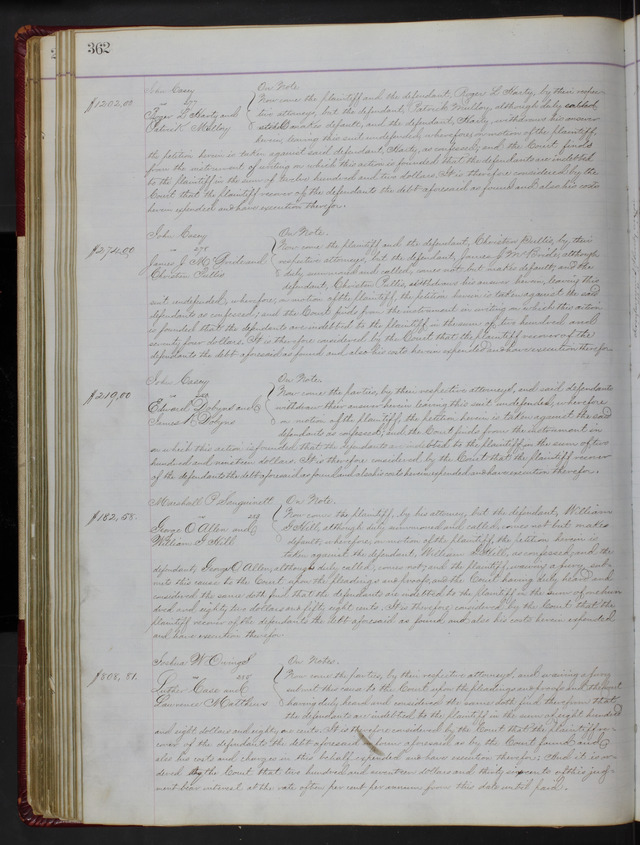 362
John Casey On Note
$1202,00. vs Now come the plaintiff and the defendant, Roger L Harty, by their respec-
Roger L Harty and tive attorneys, but the defendant, Patrick Mulloy, although duly called,
Patrick Mulloy makes default, and the defendant, Harty, withdraws his answer
herein, leaving this suit undefended, wherefore, on motion of the plaintiff,
the petition herein is taken against said defendant, Harty, as confessed; and the Court finds
from the instrument of writing on which this action is founded that the defendants are indebted
to the plaintiff in the sum of twelve hundred and two dollars. It is therefore considered by the
Court that the plaintiff recover of the defendants the debt aforesaid as found and also his costs
herein expended and have execution therefor.
John Casey On Note.
$274.00 vs Now come the plaintiff and the defendant, Christian Pullis, by their
James J McBride and respective attorneys, but the defendant, James J McBride, although
Christian Pullis duly summoned and called, comes not but makes default; and the
defendant, Christian Pullis, withdraws his answer herein, leaving this
suit undefended; wherefore, on motion of the plaintiff, the petition herein is taken against the said
defendants as confessed; and the Court finds from the instrument in writing on which this action
is founded that the defendants are indebted to the plaintiff in the sum of two hundred and
seventy four dollars. It is therefore considered by the Court that the plaintiff recover of the
defendants the debt aforesaid as found and also his costs herein expended and have execution therefor.
John Casey On Note.
$219,00 vs Now come the parties, by their respective attorneys, and said defendants
Edward Dobyns and withdraw their answer herein leaving this suit undefended, wherefore
James Dobyns on motion of the plaintiff, the petition herein is taken against the said
defendants as confessed; and the Court finds from the instrument in
on which this action is founded that the defendants are indebted to the plaintiff in the sum of two
hundred and nineteen dollars. It is therefore considered by the Court that the plaintiff recover
of the defendants the debt aforesaid as found and also his costs herein expended and have execution therefor.
Marshall P Sanguinett On Note.
$182,58. vs 229 Now comes the plaintiff, by his attorney, but the defendant, William
George O Allen and J Hill, although duly summoned and called, comes not but makes
William J Hill default; wherefore, on motion of the plaintiff, the petition herein is
taken against the defendant, William J Hill, as confessed; and the
defendant, George O Allen, although duly called, comes not; and the plaintiff, waiving a jury, sub-
mits this cause to the Court upon the pleadings and proofs, and the Court having duly heard and
considered the same doth find that the defendants are indebted to the plaintiff in the sum of one hun-
dred and eighty two dollars and fifty eight cents. It is therefore considered by the Court that the
plaintiff recover of the defendants the debt aforesaid as found and also his costs herein expended
and have execution therefor.
Joshua W On Notes.
$808,81. vs Now come the parties, by their respective attorneys, and waiving a jury
Luther Case and submit this cause to the Court upon the pleadings and proofs and the Court
Lawrence Matthews having duly heard and considered the same doth find therefrom that
the defendants are indebted to the plaintiff in the sum of eight hundred
and eight dollars and eighty one cents. It is therefore considered by the Court that the plaintiff re-
cover of the defendants the debt aforesaid in form aforesaid as by the Court found and
also his costs and charges in this behalf expended and have execution therefor; And it is or-
dered by the Court that two hundred and seventeen dollars and thirty six cents of this judg-
ment bear interest at the rate of ten per cent per annum from this date until paid.